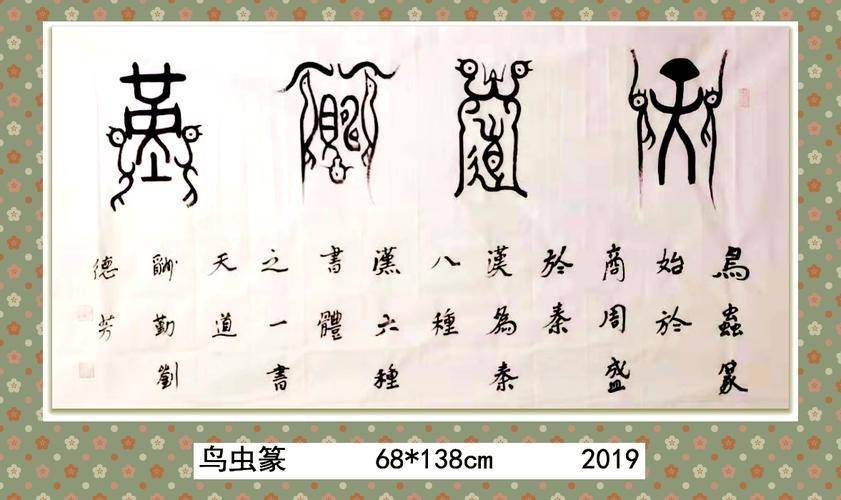 天道酬勤
鳥蟲篆
始於
商周盛
於秦
漢為秦
八種
漢六種
書體
之一書
天道
酬勤劉
德芳
鸟虫篆 68*138cm 2019